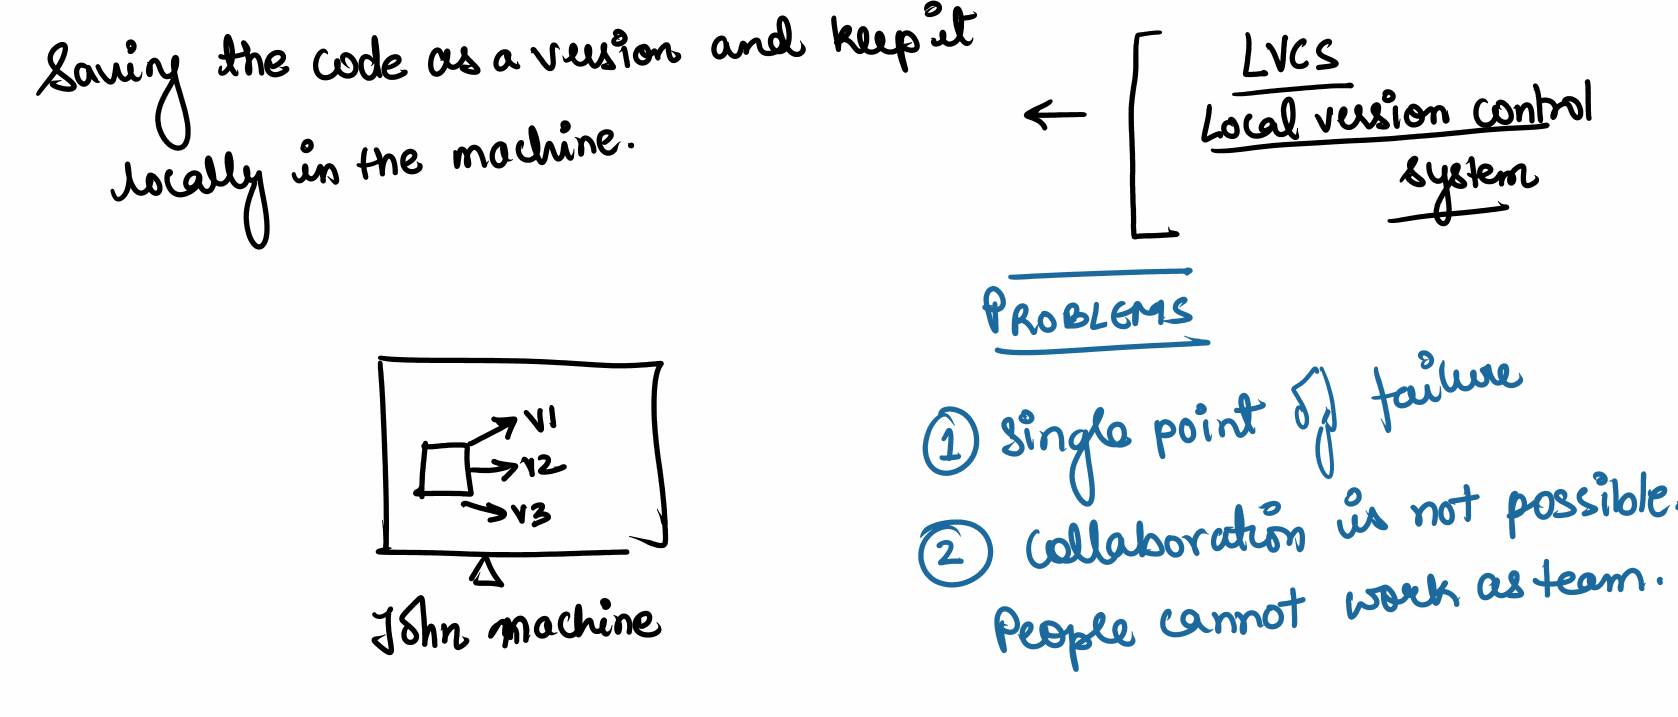 Saving the code as a version and keep it
locally in the machine.
LVCS
Local version control
system
PROBLEMS
① single point of failure
② collaboration is not possible.
People cannot work as team.
V1
V2
V3
John machine